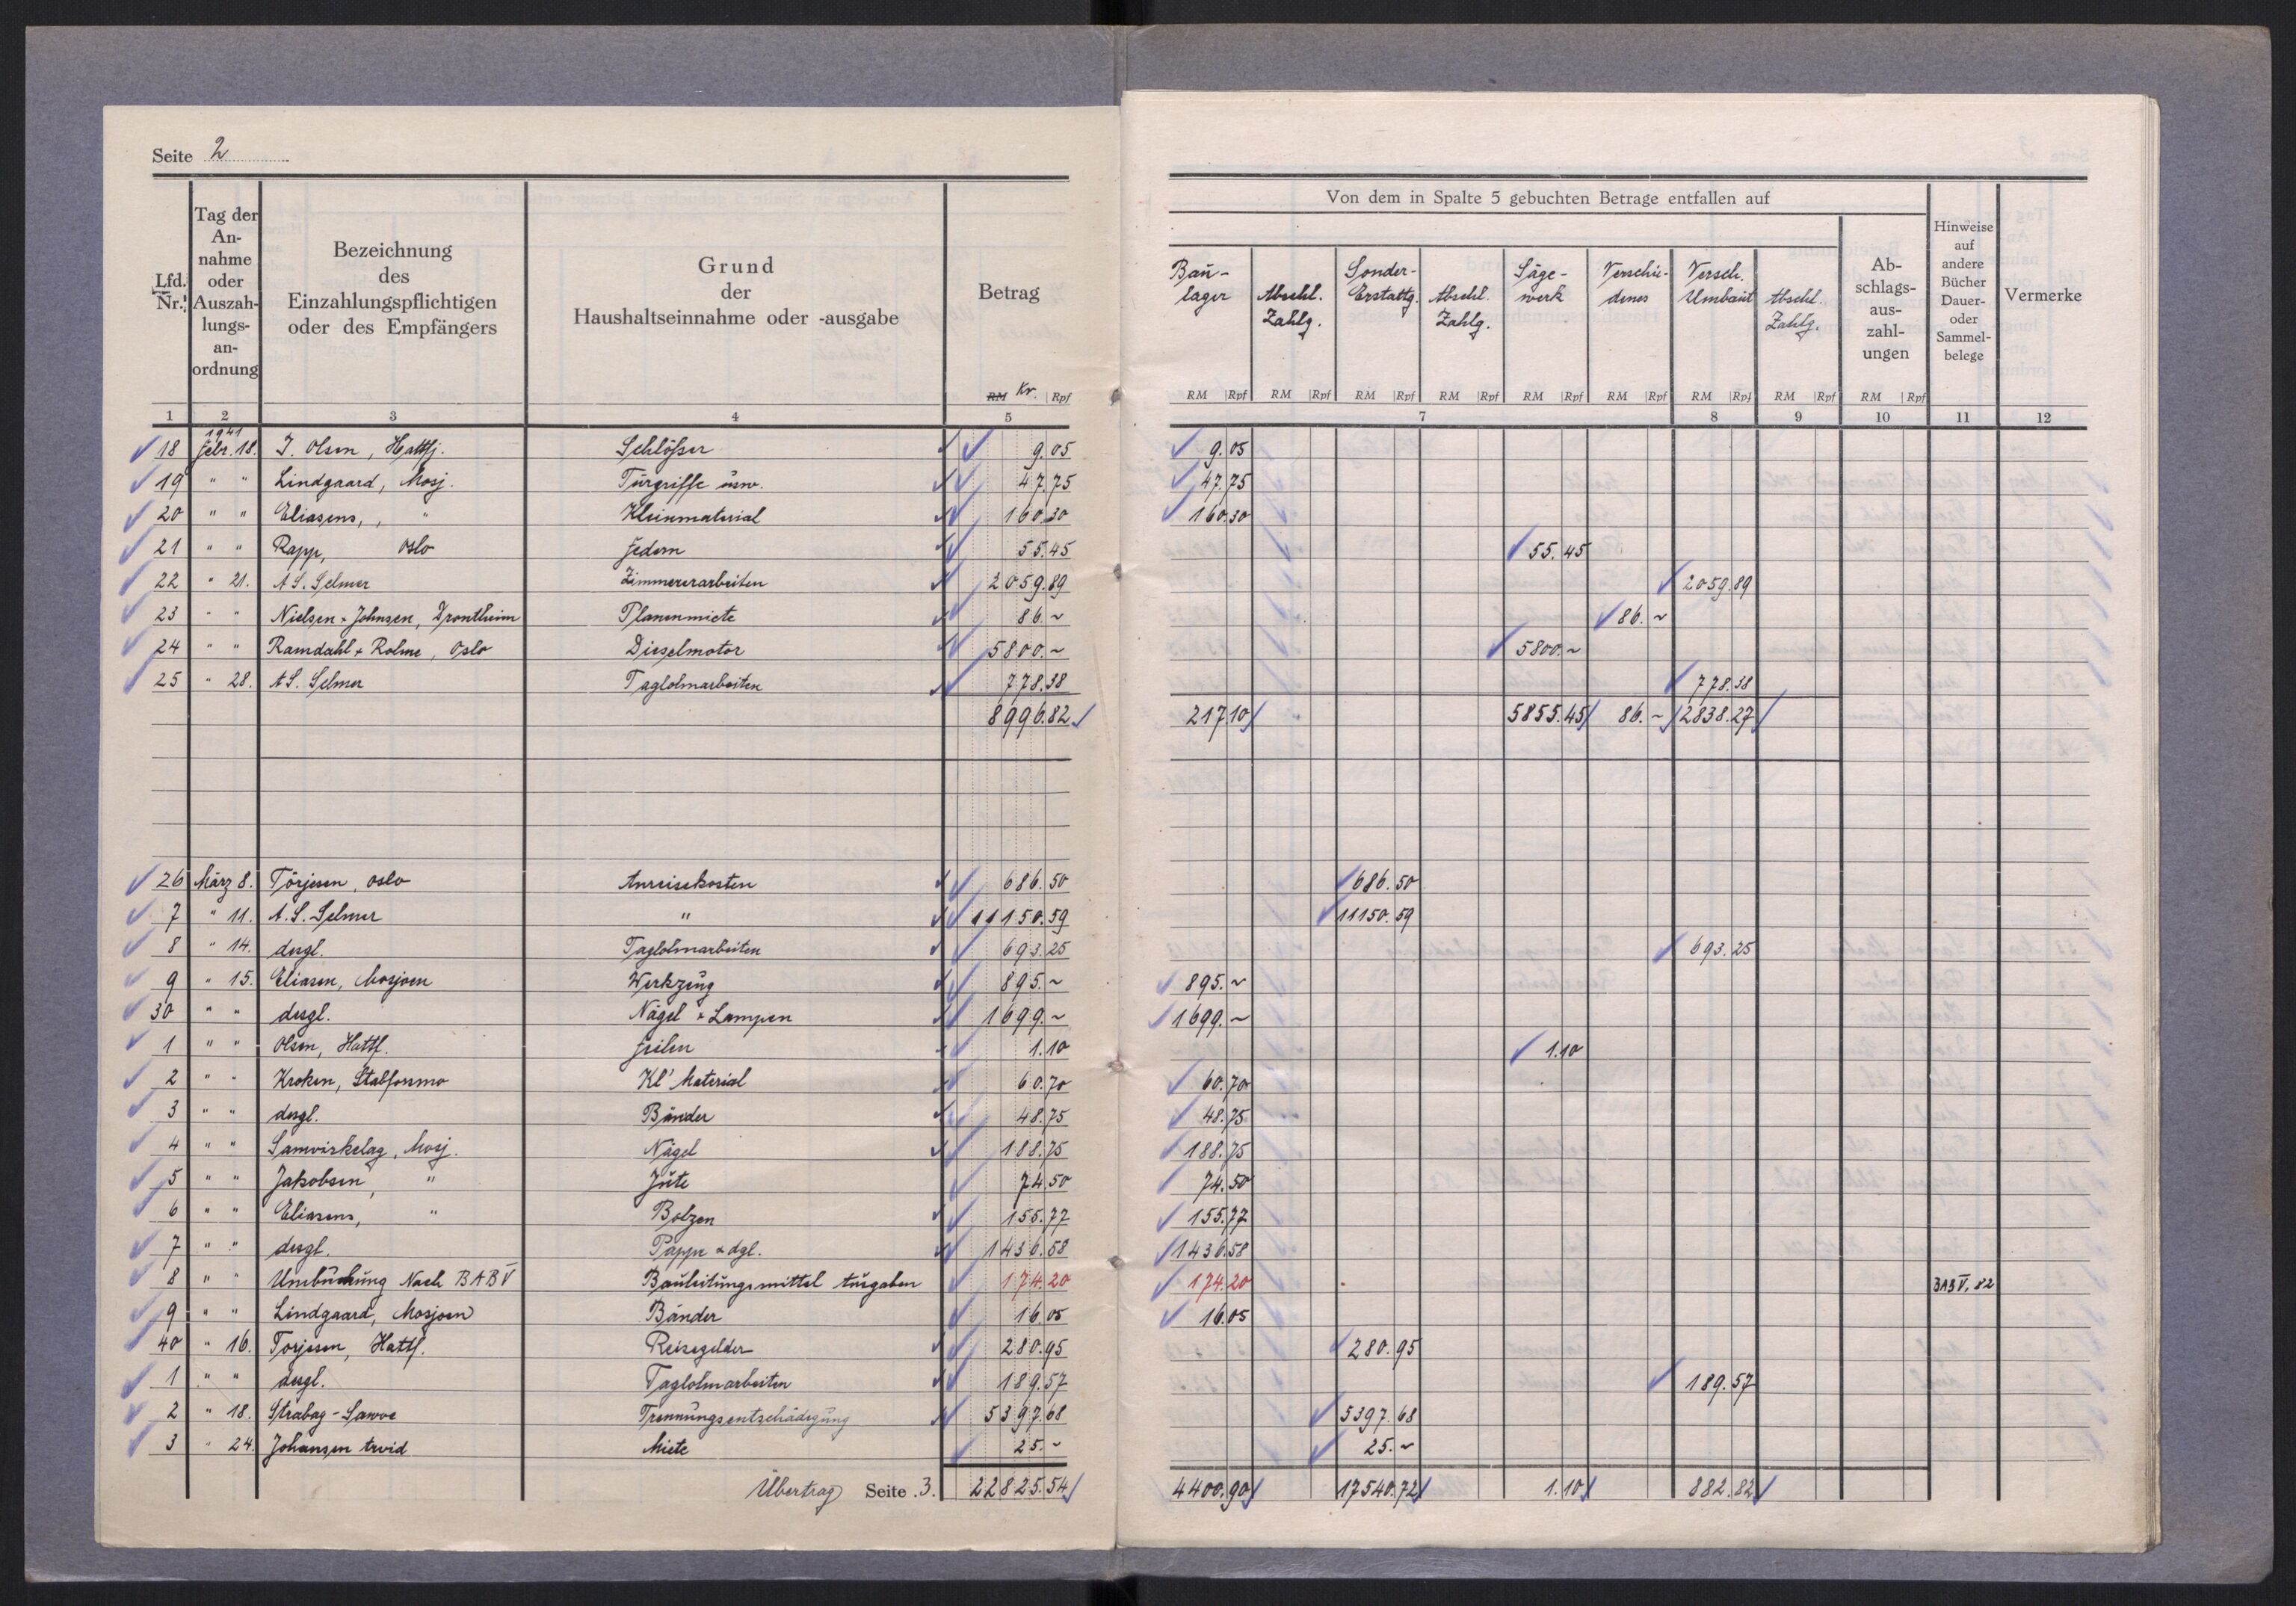 Seite 2
Lfd. Nr.
Tag der An- nahme oder Auszah- lungs- an- ordnung
Bezeichnung des Einzahlungspflichtigen oder des Empfängers
Grund der Haushaltseinnahme oder -ausgabe
Betrag
RM Kr. Rpf
1 2 3 4 5
1941
18 Febr. 18. J. Olsen, Hattfj. Schlößer 9.05
19 " " Lindgaard, Mosj. Türgriffe usw. 47.75
20 " " Eliasens, " Kleinmaterial 160.30
21 " " Rapp, Oslo Federn 55.45
22 " 21. A S. Selmer Zimmererarbeiten 2059.89
23 " " Nielsen + Johnsen, Drontheim Planenmiete 86.~
24 " " Ramdahl + Rolme, Oslo Dieselmotor 5800.~
25 " 28. A S. Selmer Taglohnarbeiten 778.38
8996.82
26 März 8. Törjesen, Oslo Anreisekosten 686.50
7 " 11. A. S. Selmer " 11150.59
8 " 14. desgl. Taglohnarbeiten 693.25
9 " 15. Eliasen, Mosjoen Werkzeug 895.~
30 " " desgl. Nägel + Lampen 1699.~
1 " " Olsen, Hattf. Feilen 1.10
2 " " Kroken, Stalforsmo Kl' Material 60.70
3 " " desgl. Bänder 48.75
4 " " Samvirkelag, Mosj. Nägel 188.75
5 " " Jakobsen, " Jute 74.50
6 " " Eliasens, " Bolzen 155.77
7 " " desgl. Pappe + dgl. 1436.58
8 " " Umbuchung Nach BAB V Bauleitungsmittel Ausgaben 174.20
9 " " Lindgaard, Mosjoen Bänder 16.05
40 " 16. Torjesen, Hattf. Reisegelder 280.95
1 " " desgl. Taglohnarbeiten 189.57
2 " 18. Strabag-Sawoe Trennungsentschädigung 5397.68
3 " 24. Johansen Arvid Miete 25.~
Übertrag Seite 3. 22825.54
Von dem in Spalte 5 gebuchten Betrage entfallen auf
Bau- lager
Abschl. Zahlg.
Sonder- Erstattg.
Abschl. Zahlg.
Säge- werk
Verschie- denes
Versch. Umbaut
Abschl. Zahlg.
Ab- schlags- aus- zahl- ungen
Hinweise auf andere Bücher Dauer- oder Sammel- belege
Vermerke
RM Rpf RM Rpf RM Rpf RM Rpf RM Rpf RM Rpf RM Rpf RM Rpf RM Rpf
7 8 9 10 11 12
9.05
47.75
160.30
55.45
2059.89
86.~
5800.~
778.38
217.10 5855.45 86.~ 2838.27
686.50
11150.59
693.25
895.~
1699.~
1.10
60.70
48.75
188.75
74.50
155.77
1436.58
174.20 BAB V, 82
16.05
280.95
189.57
5397.68
25.~
4400.90 17540.72 1.10 882.82